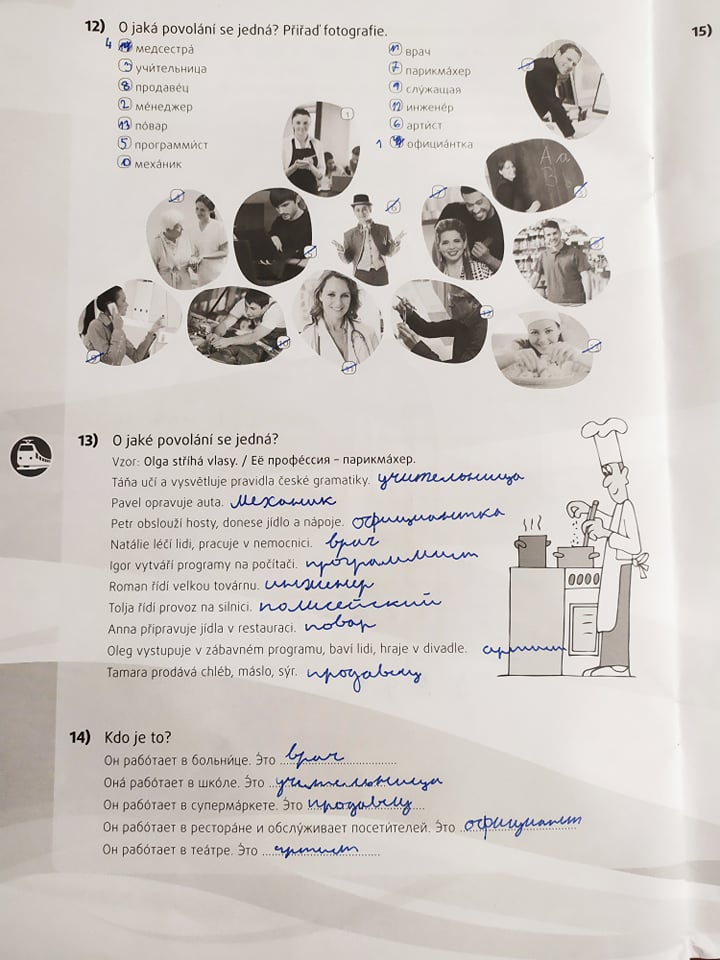 12) O jaká povolání se jedná? Přiřaď fotografie.
15)
4 медсестра́
3 учи́тельница
8 продаве́ц
2 ме́неджер
13 по́вар
5 программи́ст
10 меха́ник
11 врач
7 парикма́хер
9 слу́жащая
12 инжене́р
6 арти́ст
1 официа́нтка
1
Aa
B b
10
11
13) O jaké povolání se jedná?
Vzor: Olga stříhá vlasy. / Её профе́ссия – парикма́хер.
Táňa učí a vysvětluje pravidla české gramatiky. учительница
Pavel opravuje auta. механик
Petr obslouží hosty, donese jídlo a nápoje. официантка
Natálie léčí lidi, pracuje v nemocnici. врач
Igor vytváří programy na počítači. программист
Roman řídí velkou továrnu. инженер
Tolja řídí provoz na silnici. полисейский
Anna připravuje jídla v restauraci. повар
Oleg vystupuje v zábavném programu, baví lidi, hraje v divadle. артист
Tamara prodává chléb, máslo, sýr. продавец
14) Kdo je to?
Он рабо́тает в больни́це. Э́то врач
Она́ рабо́тает в шко́ле. Э́то учительница
Он рабо́тает в суперма́ркете. Э́то продавец
Он рабо́тает в рестора́не и обслу́живает посети́телей. Э́то официант
Он рабо́тает в теа́тре. Э́то артист